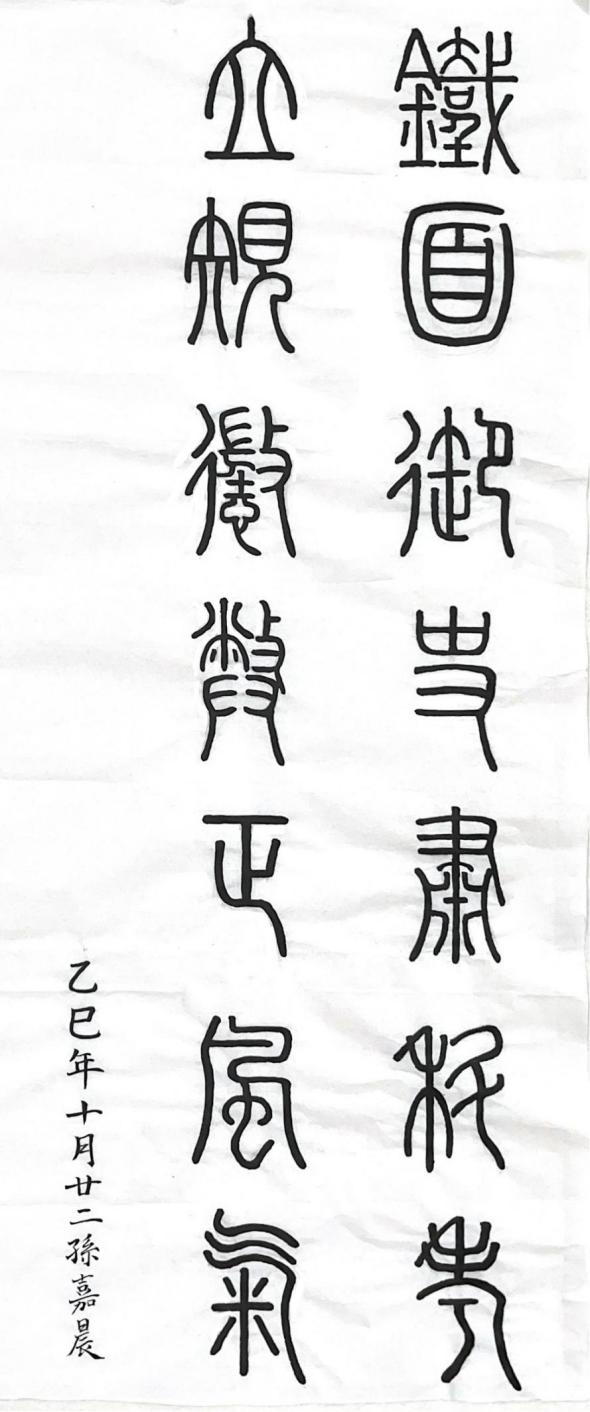 鐵面御史肅科考
立規懲弊正風氣
乙巳年十月廿二孫嘉晨